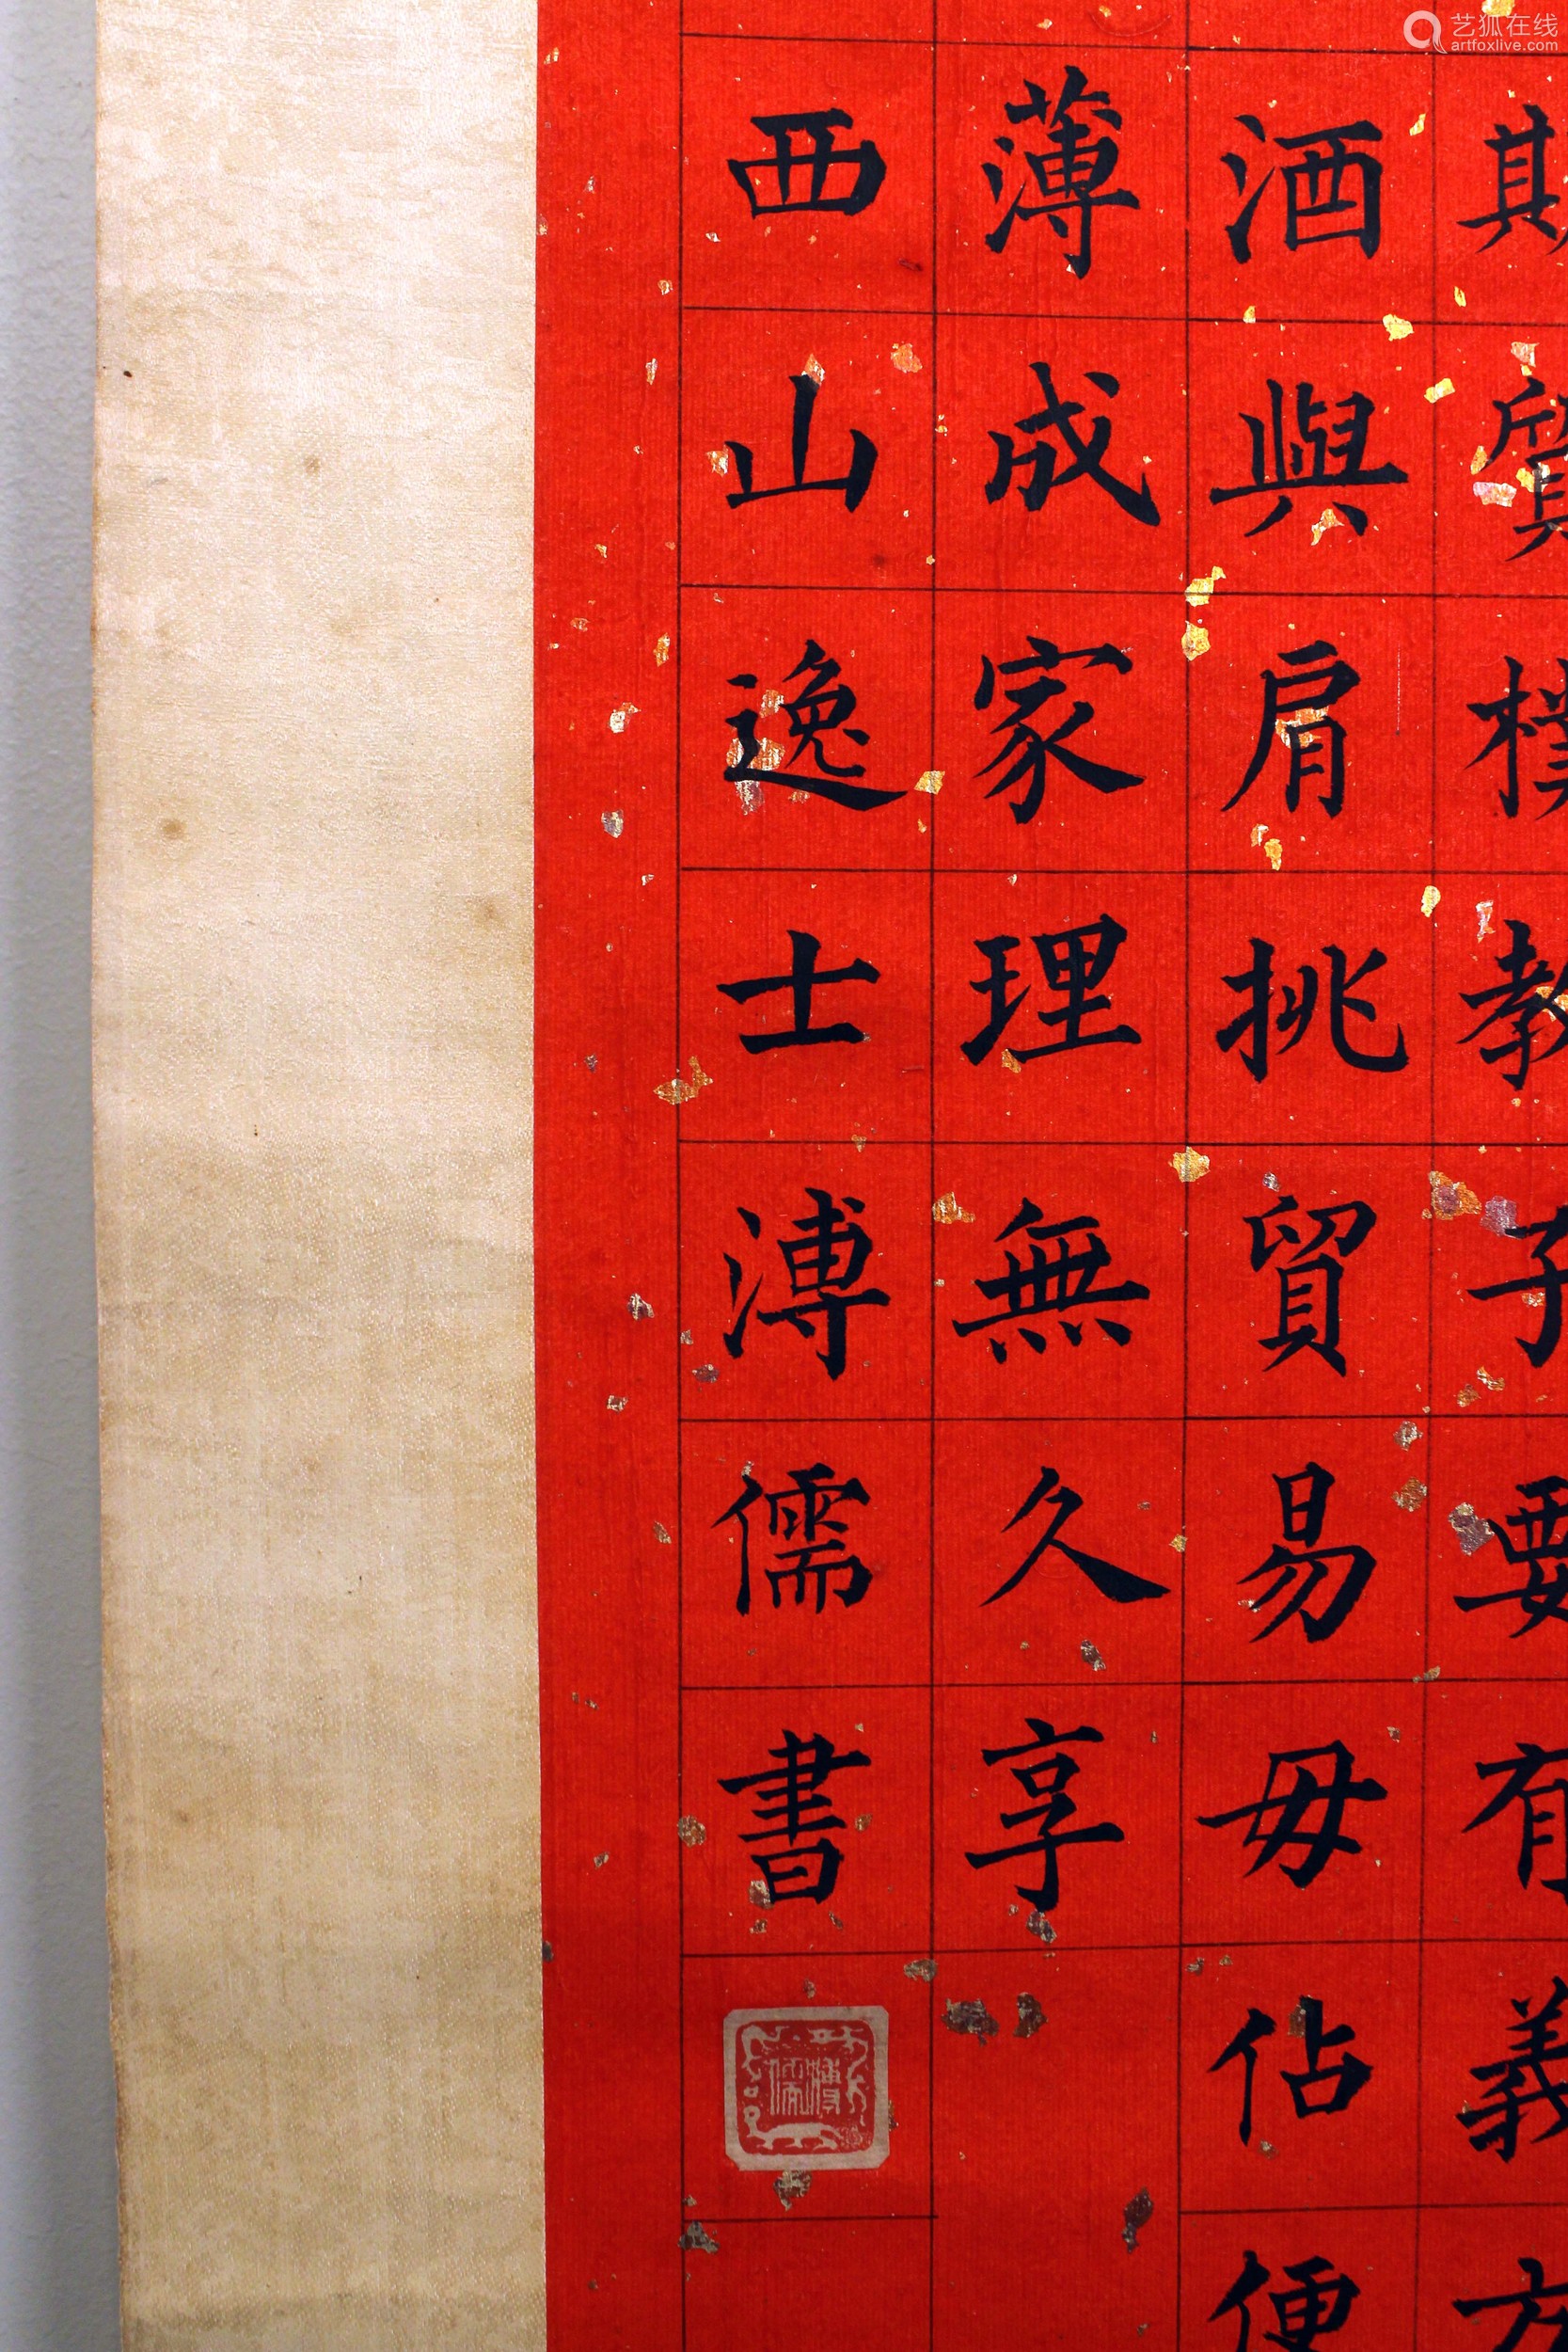 艺狐在线
artfoxlive.com
期質樸教子要有義方
酒與肩挑貿易毋佔便
薄成家理無久享
西山逸士溥儒書
溥儒